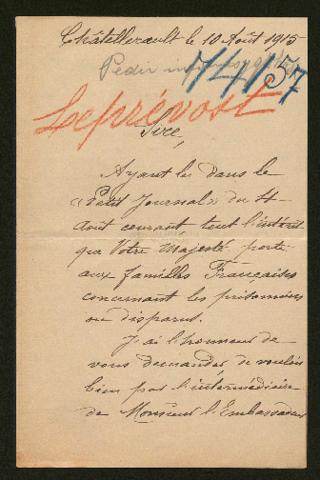 Châtellerault le 10 Août 1915
Pedir
7/4/157
Leprévost
Sire,
Ayant lu dans le
"Petit Journal" du 4
Août courant, tout l'intérêt
que Votre Majesté porte
aux familles Françaises
concernant les prisonniers
ou disparus.
J'ai l'honneur de
vous demander de vouloir
bien par l'intermédiaire
de Monsieur l'Embassadeur